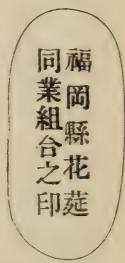 福岡縣花莚
同業組合之印